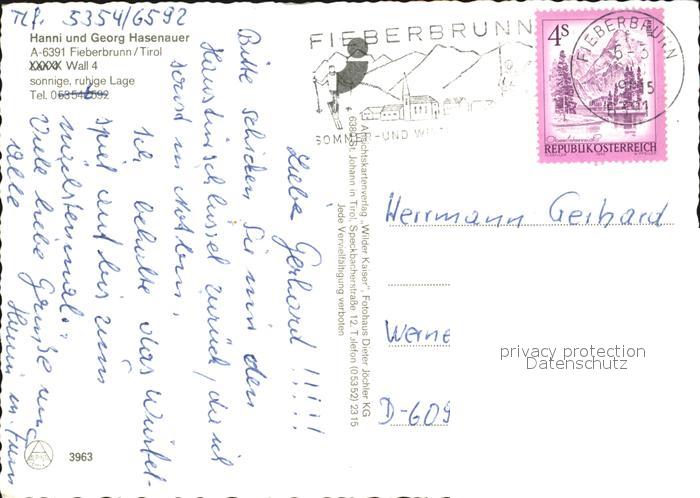 Tlf. 5354/6592
Hanni und Georg Hasenauer
A-6391 Fieberbrunn / Tirol
XXXX Wall 4
sonnige, ruhige Lage
Tel. 05354-2592
Liebe Gerhard !!!!!
Bitte schicken Sie mir den
Haustürschlüssel zurück, da ich
sonst in
Ich behalte das Würfel-
spiel auf bis zum
nächstenmal.
Viele liebe Grüße und
Hanni m. Fam
3963
Ansichtskartenverlag „Wilder Kaiser", Fotohaus Dieter Jöchler KG
6380 St. Johann in Tirol, Speckbacherstraße 12, Telefon (05352) 2315
Jede Vervielfältigung verboten
FIEBERBRUNN
SOMMER-UND WI
FIEBERBRUNN
4S
REPUBLIK ÖSTERREICH
Herrmann Gerhard
Werne
D-609
privacy protection
Datenschutz